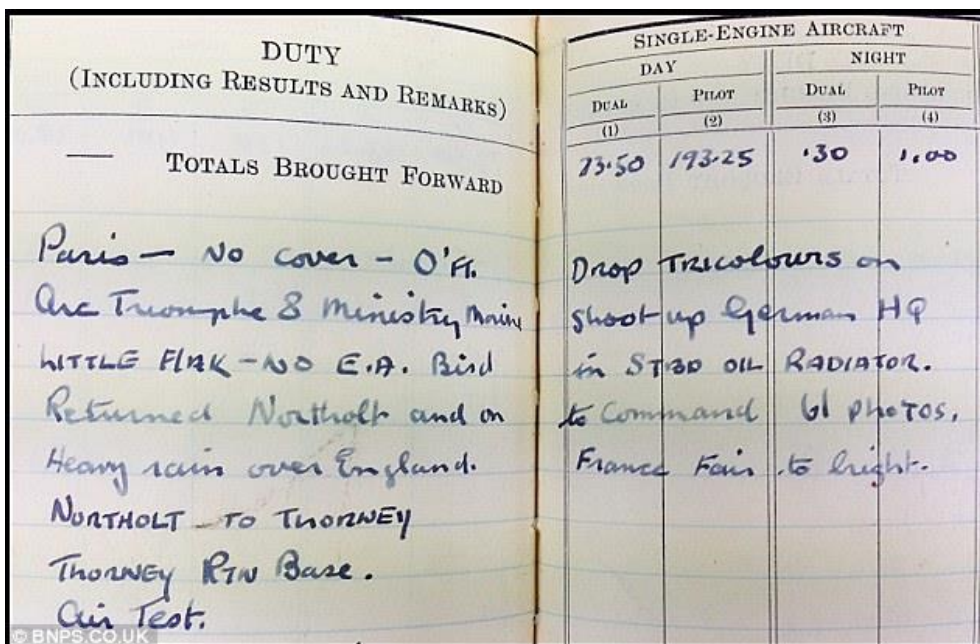 DUTY
(INCLUDING RESULTS AND REMARKS)
— TOTALS BROUGHT FORWARD
Paris — No cover - O'Ft.
Arc Triomphe & Ministry Marine
LITTLE FLAK - NO E.A. Bird
Returned Northolt and on
Heavy rain over England.
NORTHOLT - TO THORNEY
Thorney RTN Base.
Air Test.
SINGLE-ENGINE AIRCRAFT
DAY NIGHT
DUAL PILOT DUAL PILOT
(1) (2) (3) (4)
73.50 193.25 .30 1.00
Drop TRICOLOURS on
shoot up German HQ
in STBD OIL RADIATOR.
to Command 61 photos.
France Fair to bright.
© BNPS.CO.UK